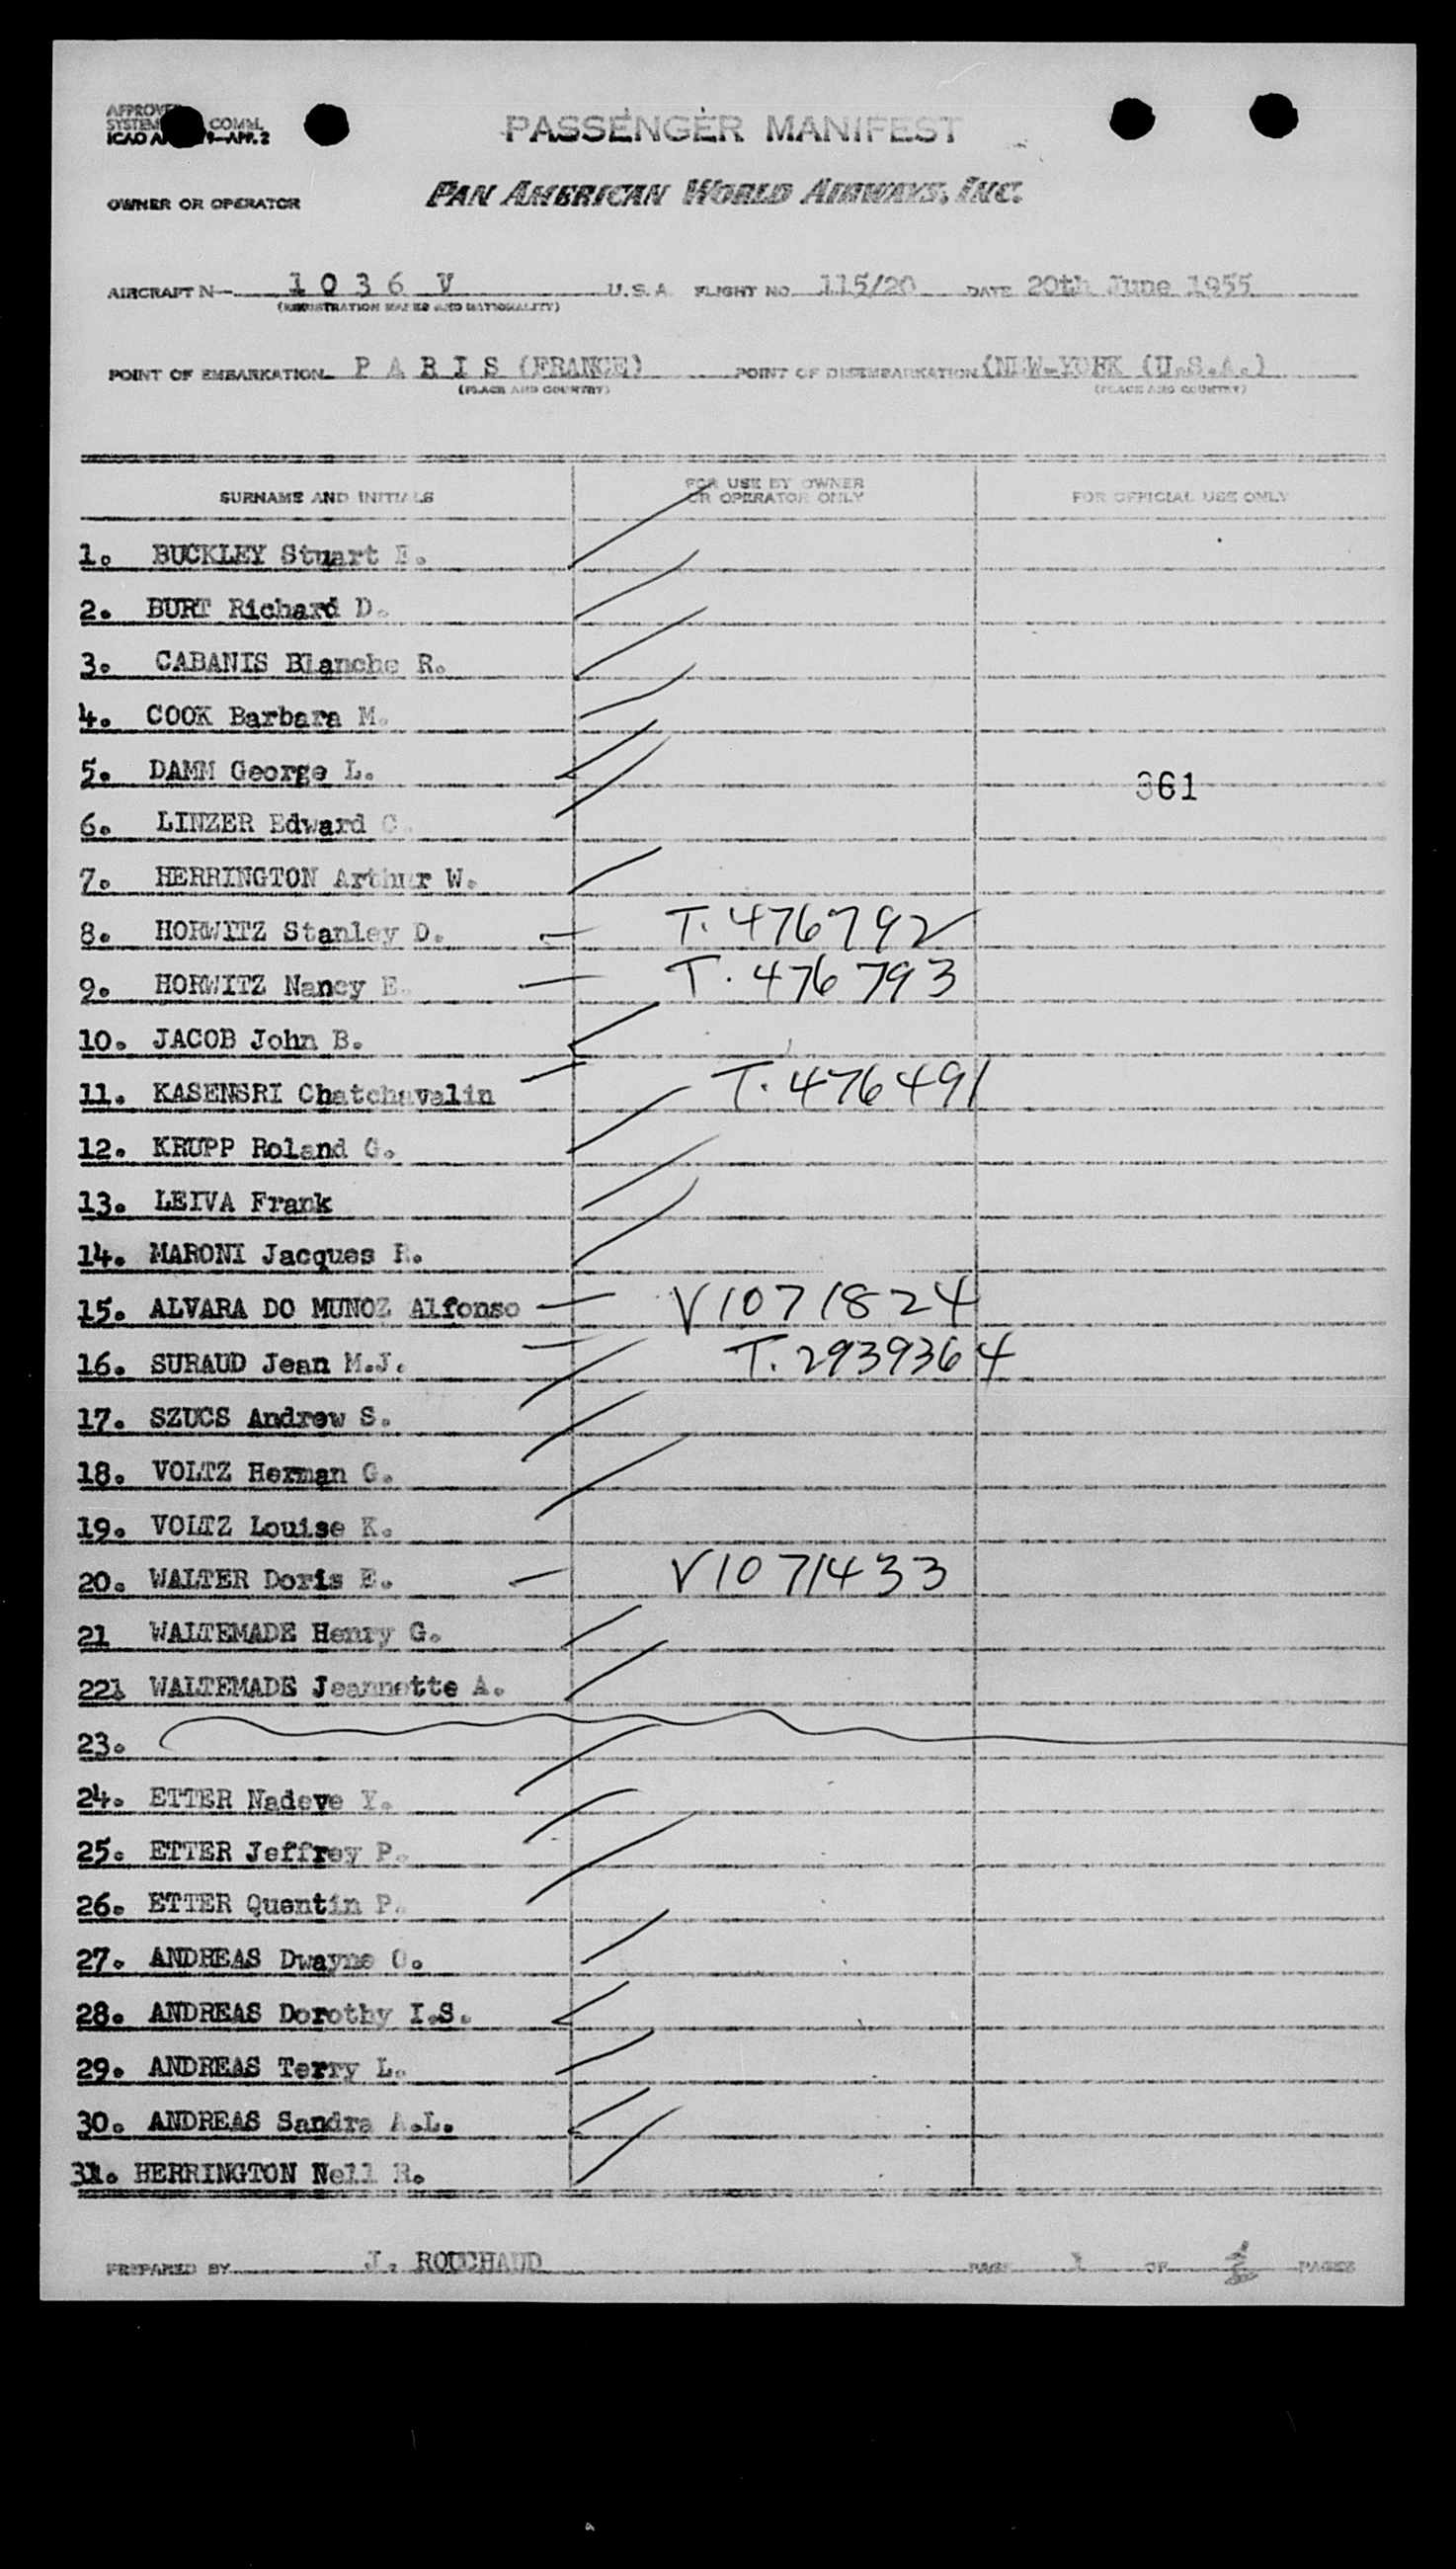 PASSENGER MANIFEST
OWNER OR OPERATOR PAN AMERICAN WORLD AIRWAYS, INC.
AIRCRAFT N- 1 0 3 6 V U.S.A. FLIGHT NO. 115/20 DATE 20th June 1955
(REGISTRATION MARKS AND NATIONALITY)
POINT OF EMBARKATION P A R I S (FRANCE) POINT OF DISEMBARKATION (NEW-YORK (U.S.A.)
(PLACE AND COUNTRY) (PLACE AND COUNTRY)
SURNAME AND INITIALS FOR USE BY OWNER OR OPERATOR ONLY FOR OFFICIAL USE ONLY
1. BUCKLEY Stuart
2. BURT Richard D.
3. CABANIS Blanche R.
4. COOK Barbara M.
5. DAMM George L. 361
6. LINZER Edward C.
7. HERRINGTON Arthur W.
8. HORWITZ Stanley D. T. 476792
9. HORWITZ Nancy E. T. 476793
10. JACOB John B.
11. KASENSRI Chatchavalin T. 476491
12. KRUPP Roland G.
13. LEIVA Frank
14. MARONI Jacques R.
15. ALVARA DO MUNOZ Alfonso V1071824
16. SURAUD Jean M.J. T. 2939364
17. SZUCS Andrew S.
18. VOLTZ Herman G.
19. VOLTZ Louise K.
20. WALTER Doris E. V1071433
21 WALTEMADE Henry G.
22 WALTEMADE Jeannette A.
23.
24. ETTER Nadeve Y.
25. ETTER Jeffrey P.
26. ETTER Quentin P.
27. ANDREAS Dwayne O.
28. ANDREAS Dorothy I.S.
29. ANDREAS Terry L.
30. ANDREAS Sandra A.L.
31. HERRINGTON Nell R.
PREPARED BY J. ROUCHAUD PAGE 1 OF PAGES